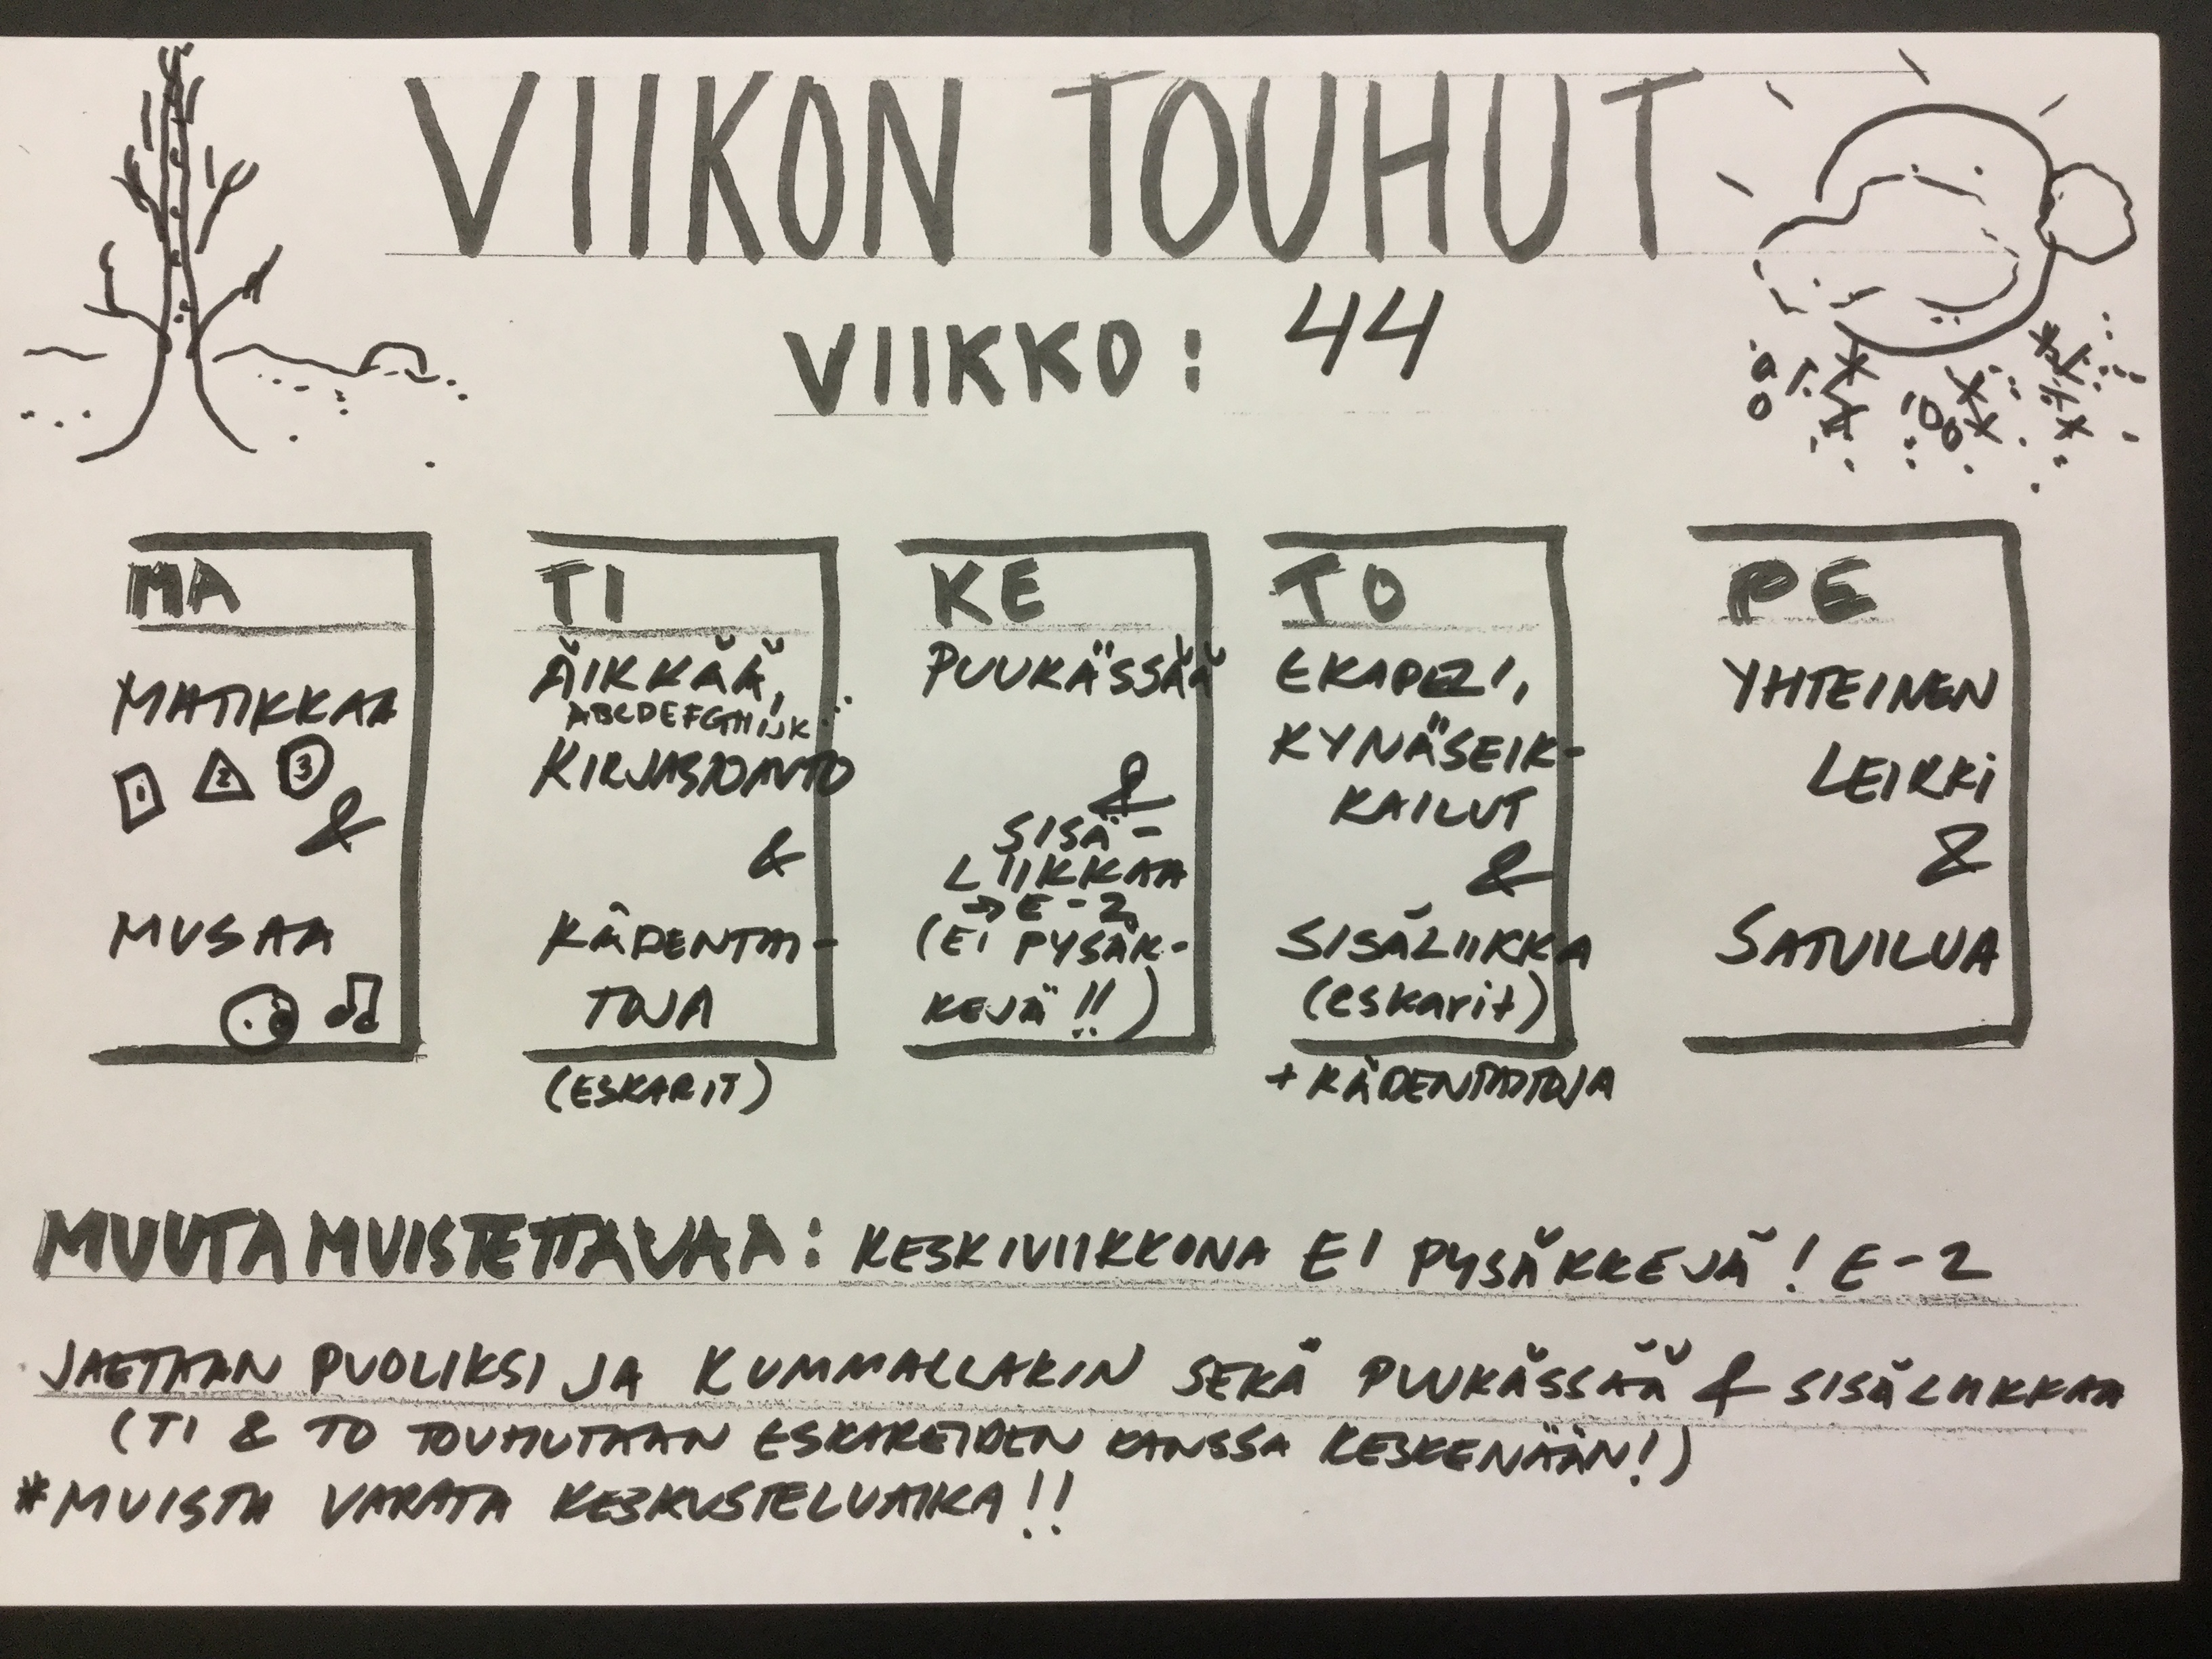 VIIKON TOUHUT
VIIKKO: 44
MA
MATIKKAA
1 2 3
&
MUSAA
TI
ÄIKKÄÄ,
ABCDEFGHIJK...
KIRJASTOAUTO
&
KÄDENTAI-
TOJA
(ESKARIT)
KE
PUUKÄSSÄÄ
&
SISÄ-
LIIKKAA
→ E-2
(EI PYSÄK-
KEJÄ!!)
TO
EKAPELI,
KYNÄSEIK-
KAILUT
&
SISÄLIIKKA
(eskarit)
+ KÄDENTAITOJA
PE
YHTEINEN
LEIKKI
&
SATUILUA
MUUTA MUISTETTAVAA: KESKIVIIKKONA EI PYSÄKKEJÄ! E-2
JAETAAN PUOLIKSI JA KUMMALLAKIN SEKÄ PUUKÄSSÄÄ & SISÄLIIKKAA
(TI & TO TOUHUTAAN ESKAREIDEN KANSSA KESKENÄÄN!)
*MUISTA VARATA KESKUSTELUAIKA!!